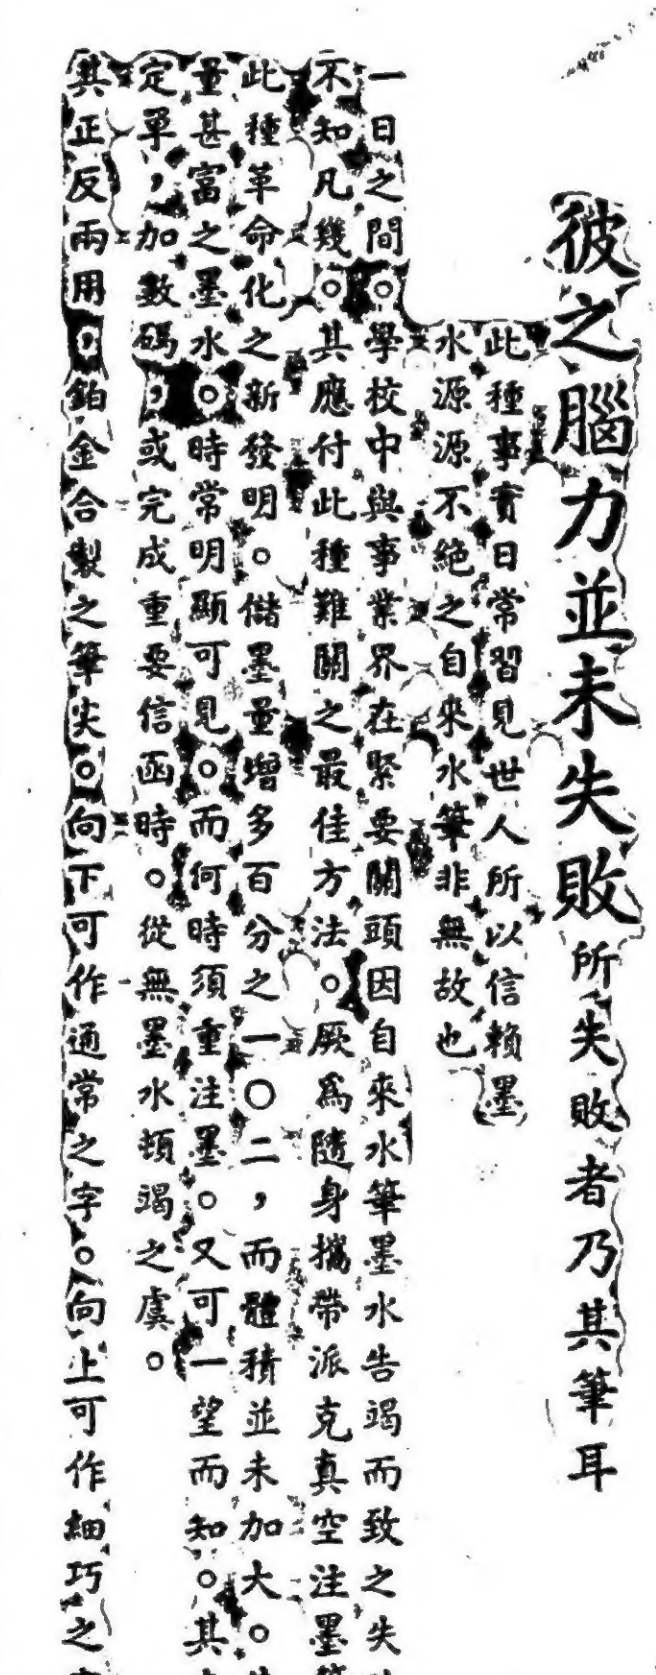 彼之腦力並未失敗所失敗者乃其筆耳
此種事實日常習見世人所以信賴墨
水源源不絕之自來水筆非無故也
一日之間。學校中與事業界在緊要關頭因自來水筆墨水告竭而致之失
不知凡幾。其應付此種難關之最佳方法。厥爲隨身攜帶派克真空注墨
此種革命化之新發明。儲墨量增多百分之一〇二，而體積並未加大。
量甚富之墨水。時常明顯可見。而何時須重注墨。又可一望而知。其
定單，加數碼，或完成重要信函時。從無墨水頓竭之虞。
其正反兩用，鉑金合製之筆尖。向下可作通常之字。向上可作細巧之